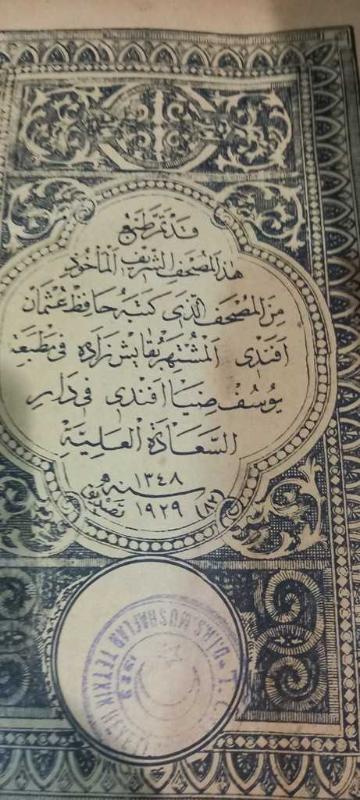 قد تم طبع
هذا المصحف الشريف المأخوذ
من المصحف الذي كتبه حافظ عثمان
افندى المشتهر بقايش زاده فى مطبعة
يوسف ضيا افندى فى دار
السعادة العلية
سنه ١٣٤٨
١٩٢٩
T.C. DİYANET MUSHAFLAR TETKİK